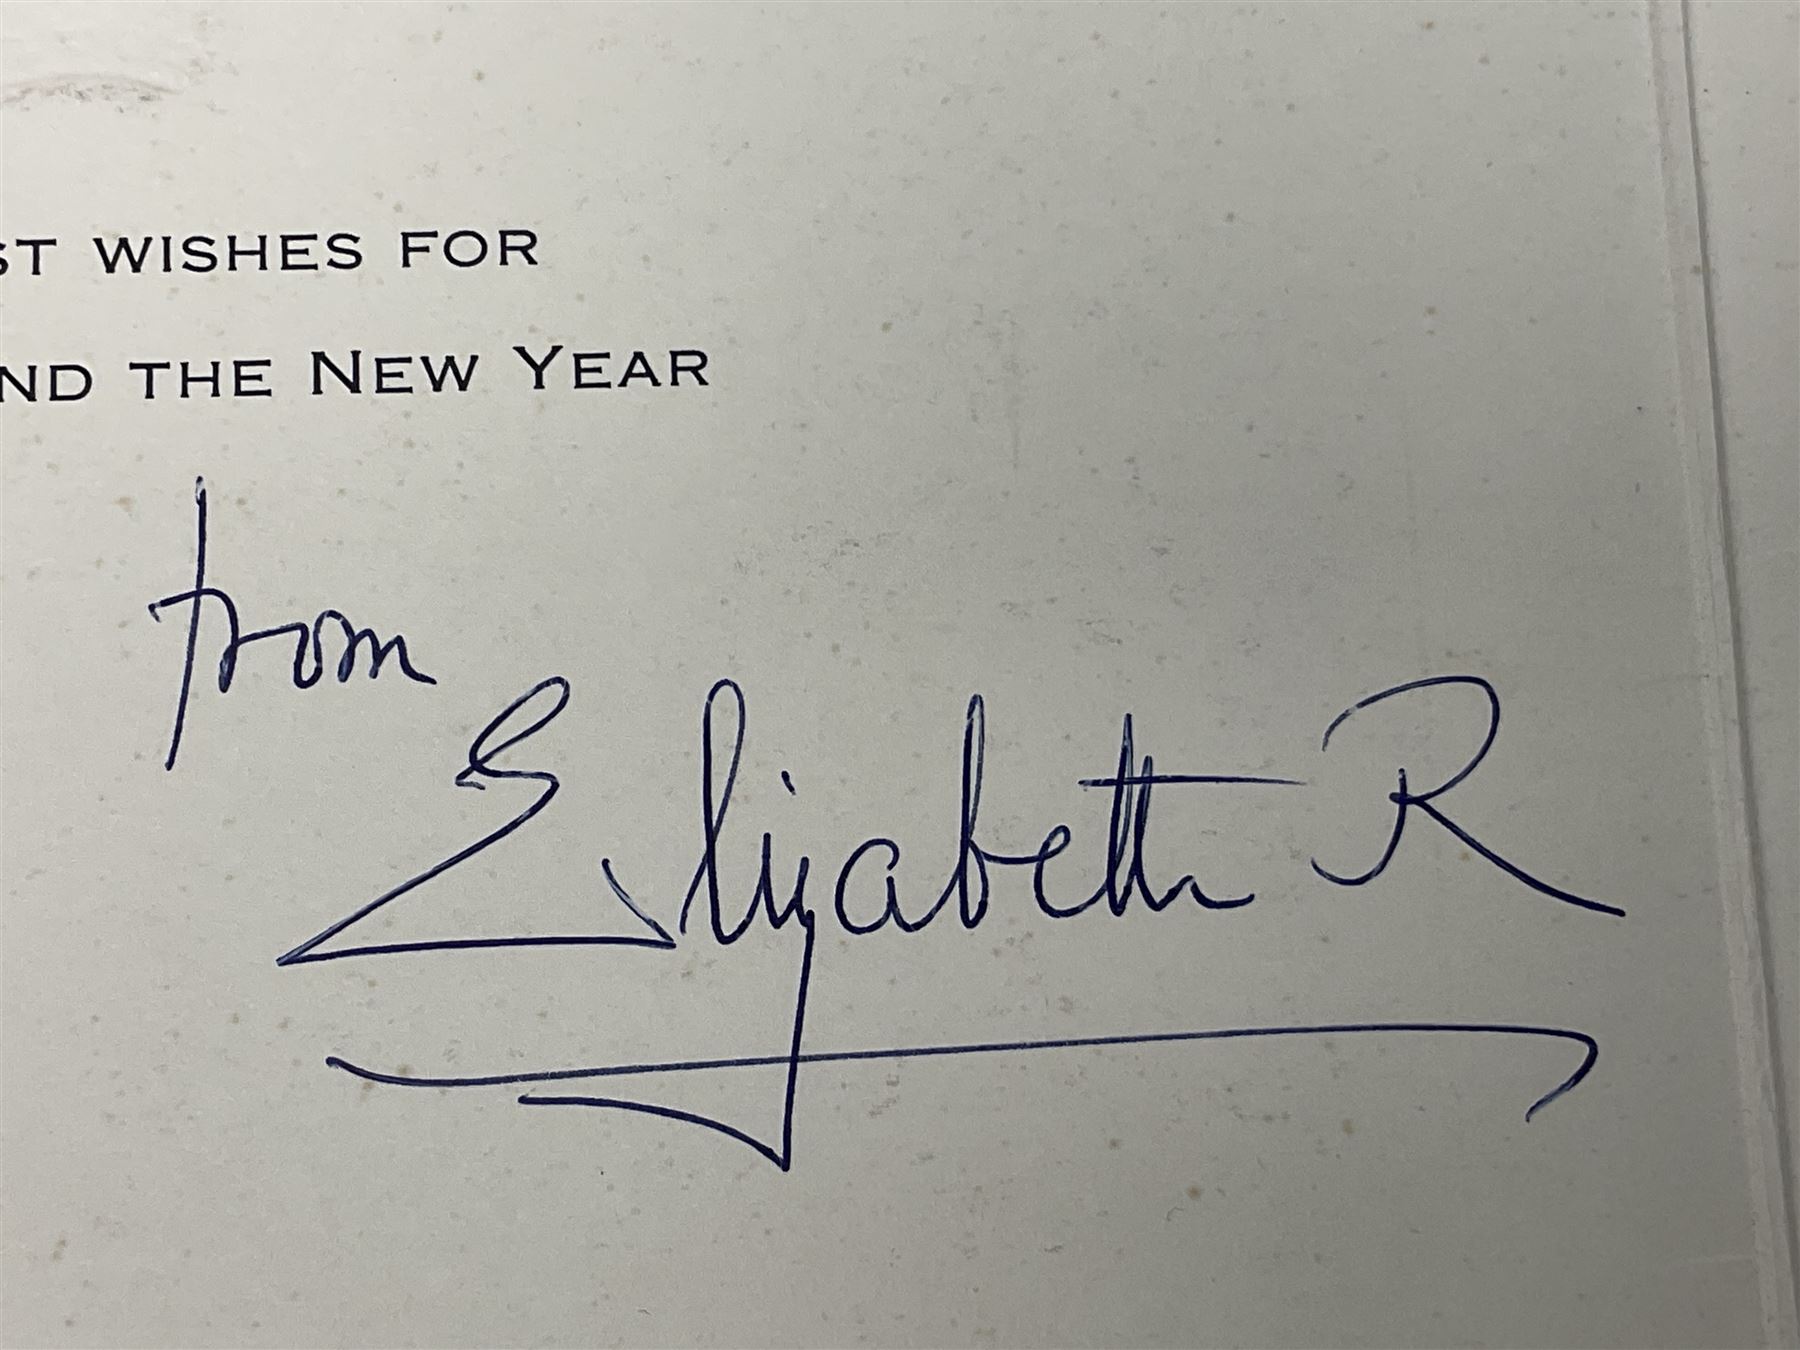 ST WISHES FOR
ND THE NEW YEAR
from
Elizabeth R